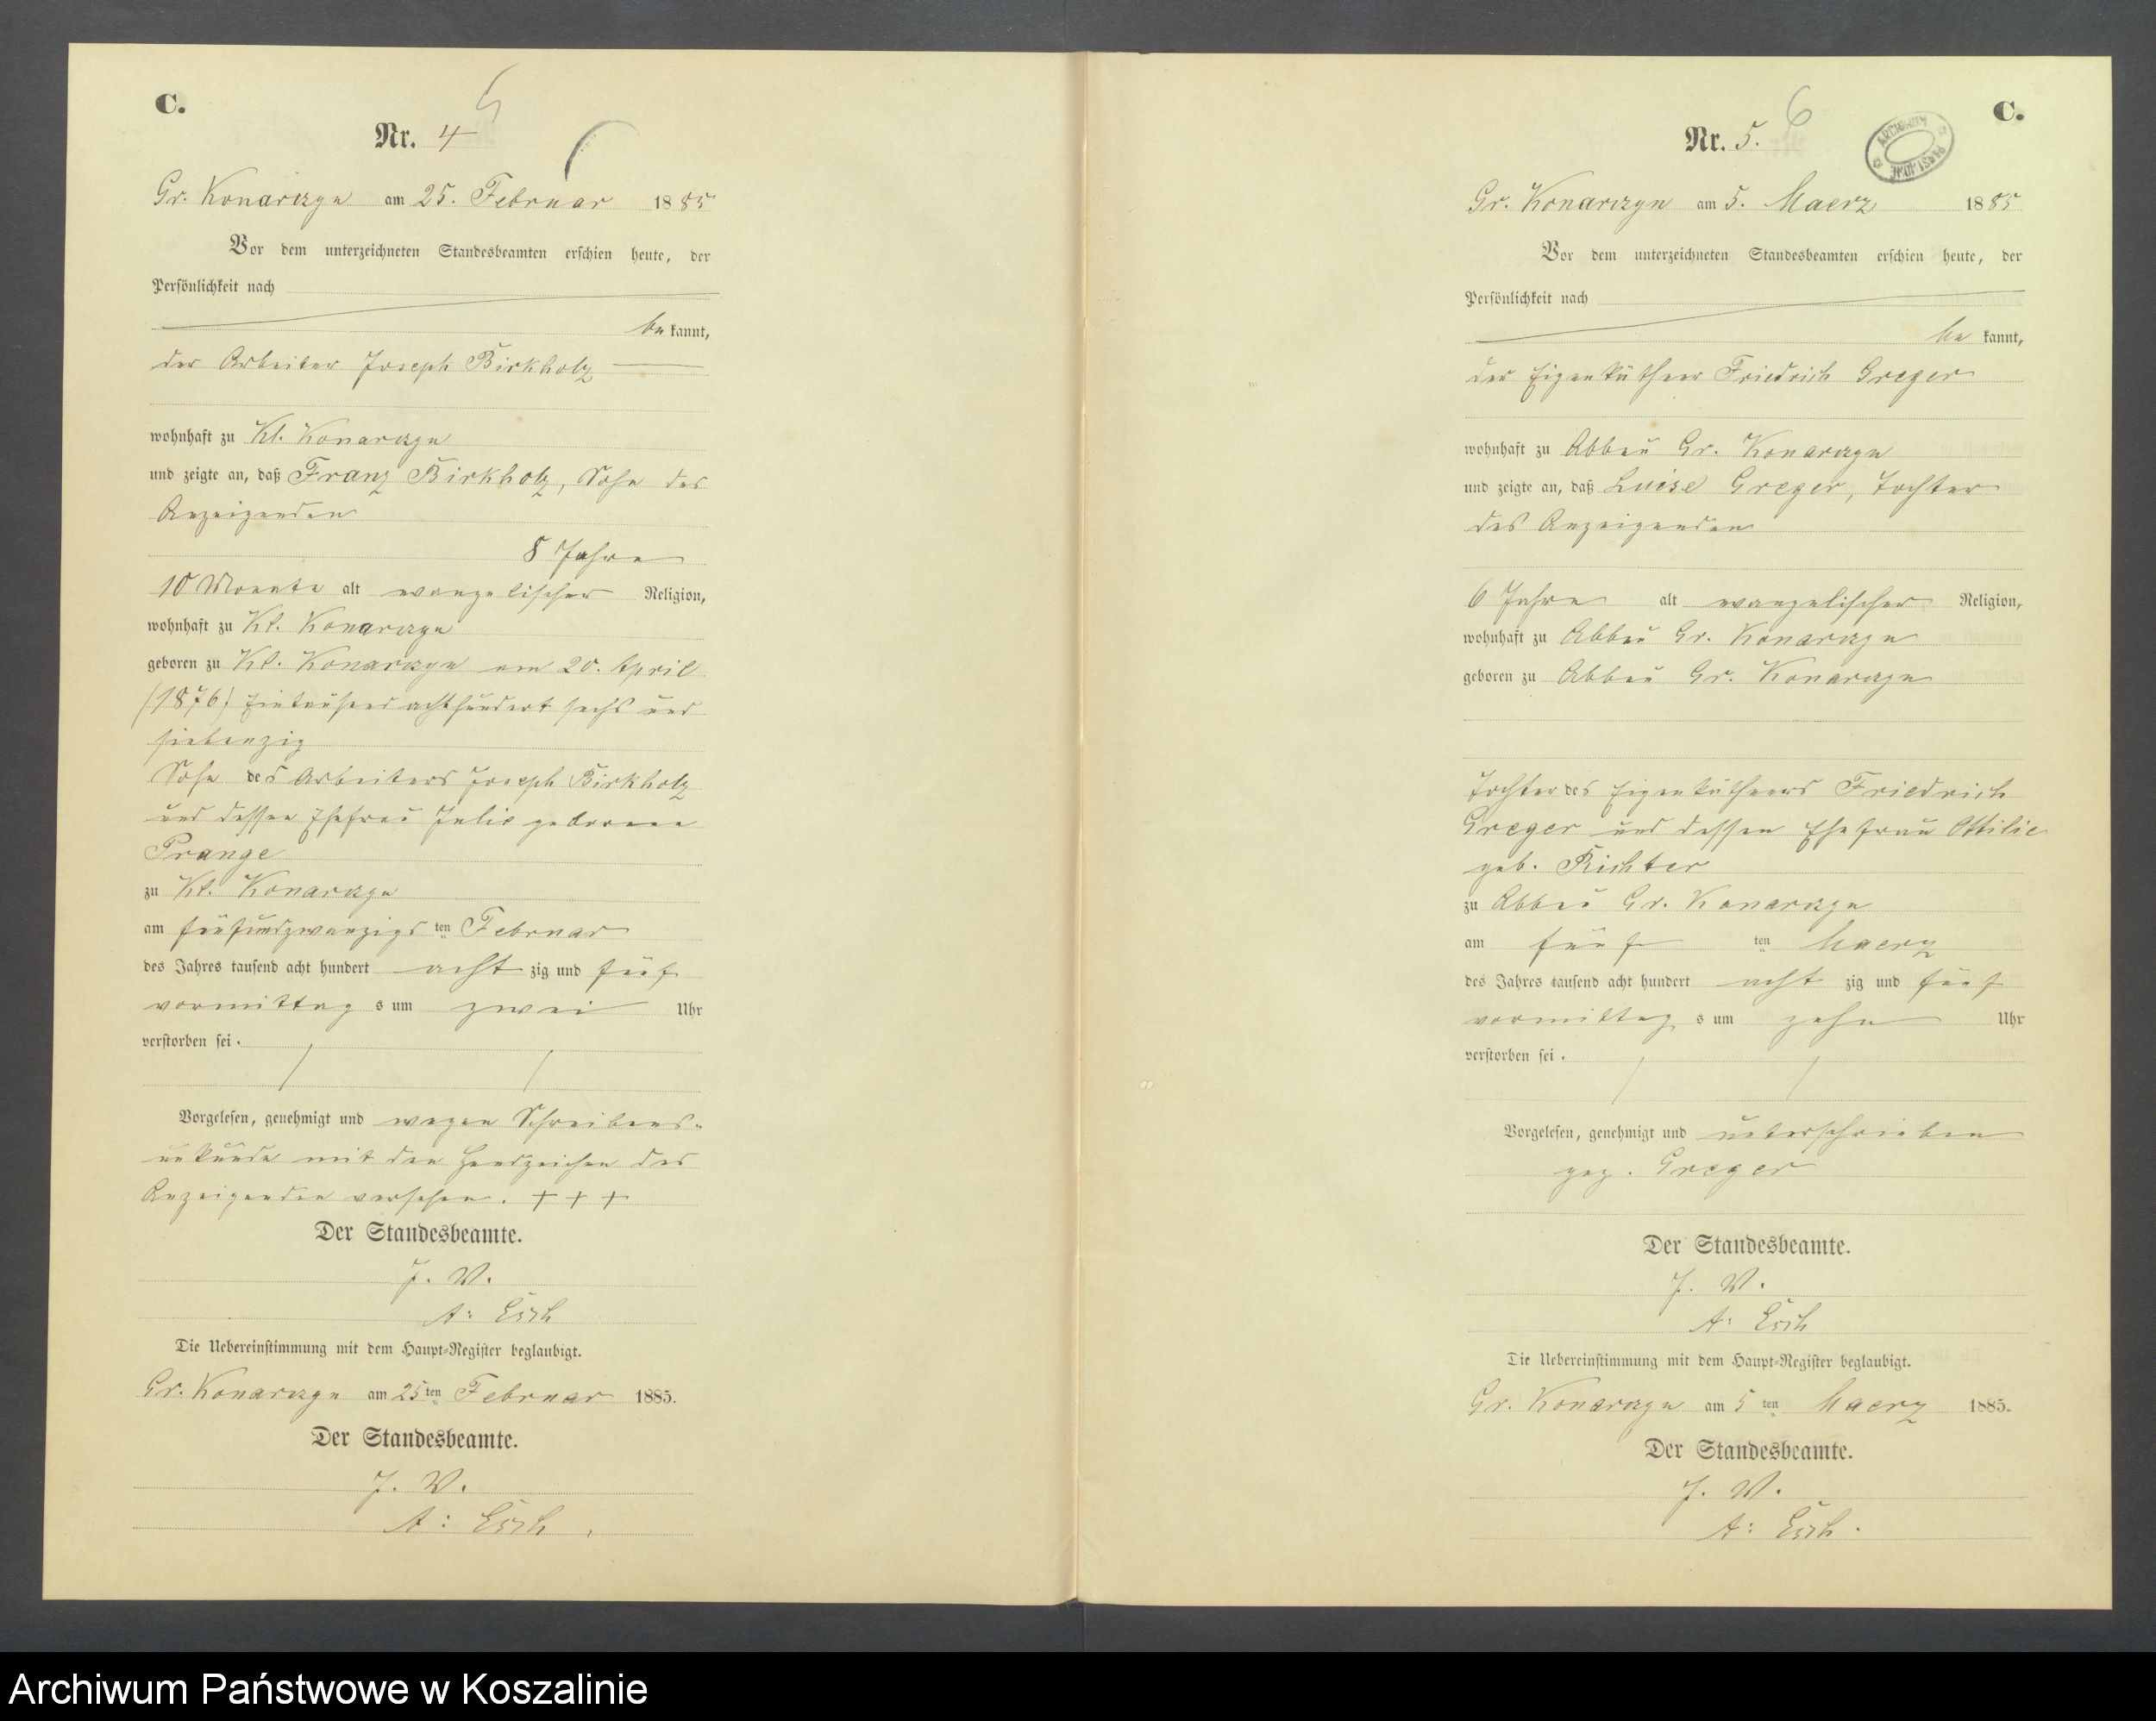 C.
5
Nr. 4
Gr. Konarczyn am 25. Februar 1885
Vor dem unterzeichneten Standesbeamten erschien heute, der
Persönlichkeit nach
be kannt,
der Arbeiter Joseph Birkholz
wohnhaft zu Kl. Konarczyn
und zeigte an, daß Franz Birkholz, Sohn des
Anzeigenden
8 Jahre
10 Monate alt evangelischer Religion,
wohnhaft zu Kl. Konarczyn
geboren zu Kl. Konarczyn am 20. April
(1876) Eintausend achthundert sechs und
siebenzig
Sohn des Arbeiters Joseph Birkholz
und dessen Ehefrau Julie geborene
Prange
zu Kl. Konarczyn
am fünfundzwanzigs ten Februar
des Jahres tausend acht hundert acht zig und fünf
vormittag s um zwei Uhr
verstorben sei.
Vorgelesen, genehmigt und wegen Schreibens-
unkunde mit den Handzeichen des
Anzeigenden versehen. + + +
Der Standesbeamte.
J. V.
A: Esch
Die Uebereinstimmung mit dem Haupt-Register beglaubigt.
Gr. Konarczyn am 25 ten Februar 1885.
Der Standesbeamte.
J. V.
A: Esch.
C.
6
Nr. 5.
ARCHIWUM PAŃSTWOWE
Gr. Konarczyn am 5. Maerz 1885
Vor dem unterzeichneten Standesbeamten erschien heute, der
Persönlichkeit nach
be kannt,
der Eigenkäthner Friedrich Greger
wohnhaft zu Abbau Gr. Konarczyn
und zeigte an, daß Luise Greger, Tochter
des Anzeigenden
6 Jahre alt evangelischer Religion,
wohnhaft zu Abbau Gr. Konarczyn
geboren zu Abbau Gr. Konarczyn
Tochter des Eigenkäthners Friedrich
Greger und dessen Ehefrau Ottilie
geb. Richter
zu Abbau Gr. Konarczyn
am fünf ten Maerz
des Jahres tausend acht hundert acht zig und fünf
vormittag s um zehn Uhr
verstorben sei.
Vorgelesen, genehmigt und unterschrieben
gez. Greger
Der Standesbeamte.
J. V.
A: Esch
Die Uebereinstimmung mit dem Haupt-Register beglaubigt.
Gr. Konarczyn am 5 ten Maerz 1885.
Der Standesbeamte.
J. V.
A: Esch.
Archiwum Państwowe w Koszalinie